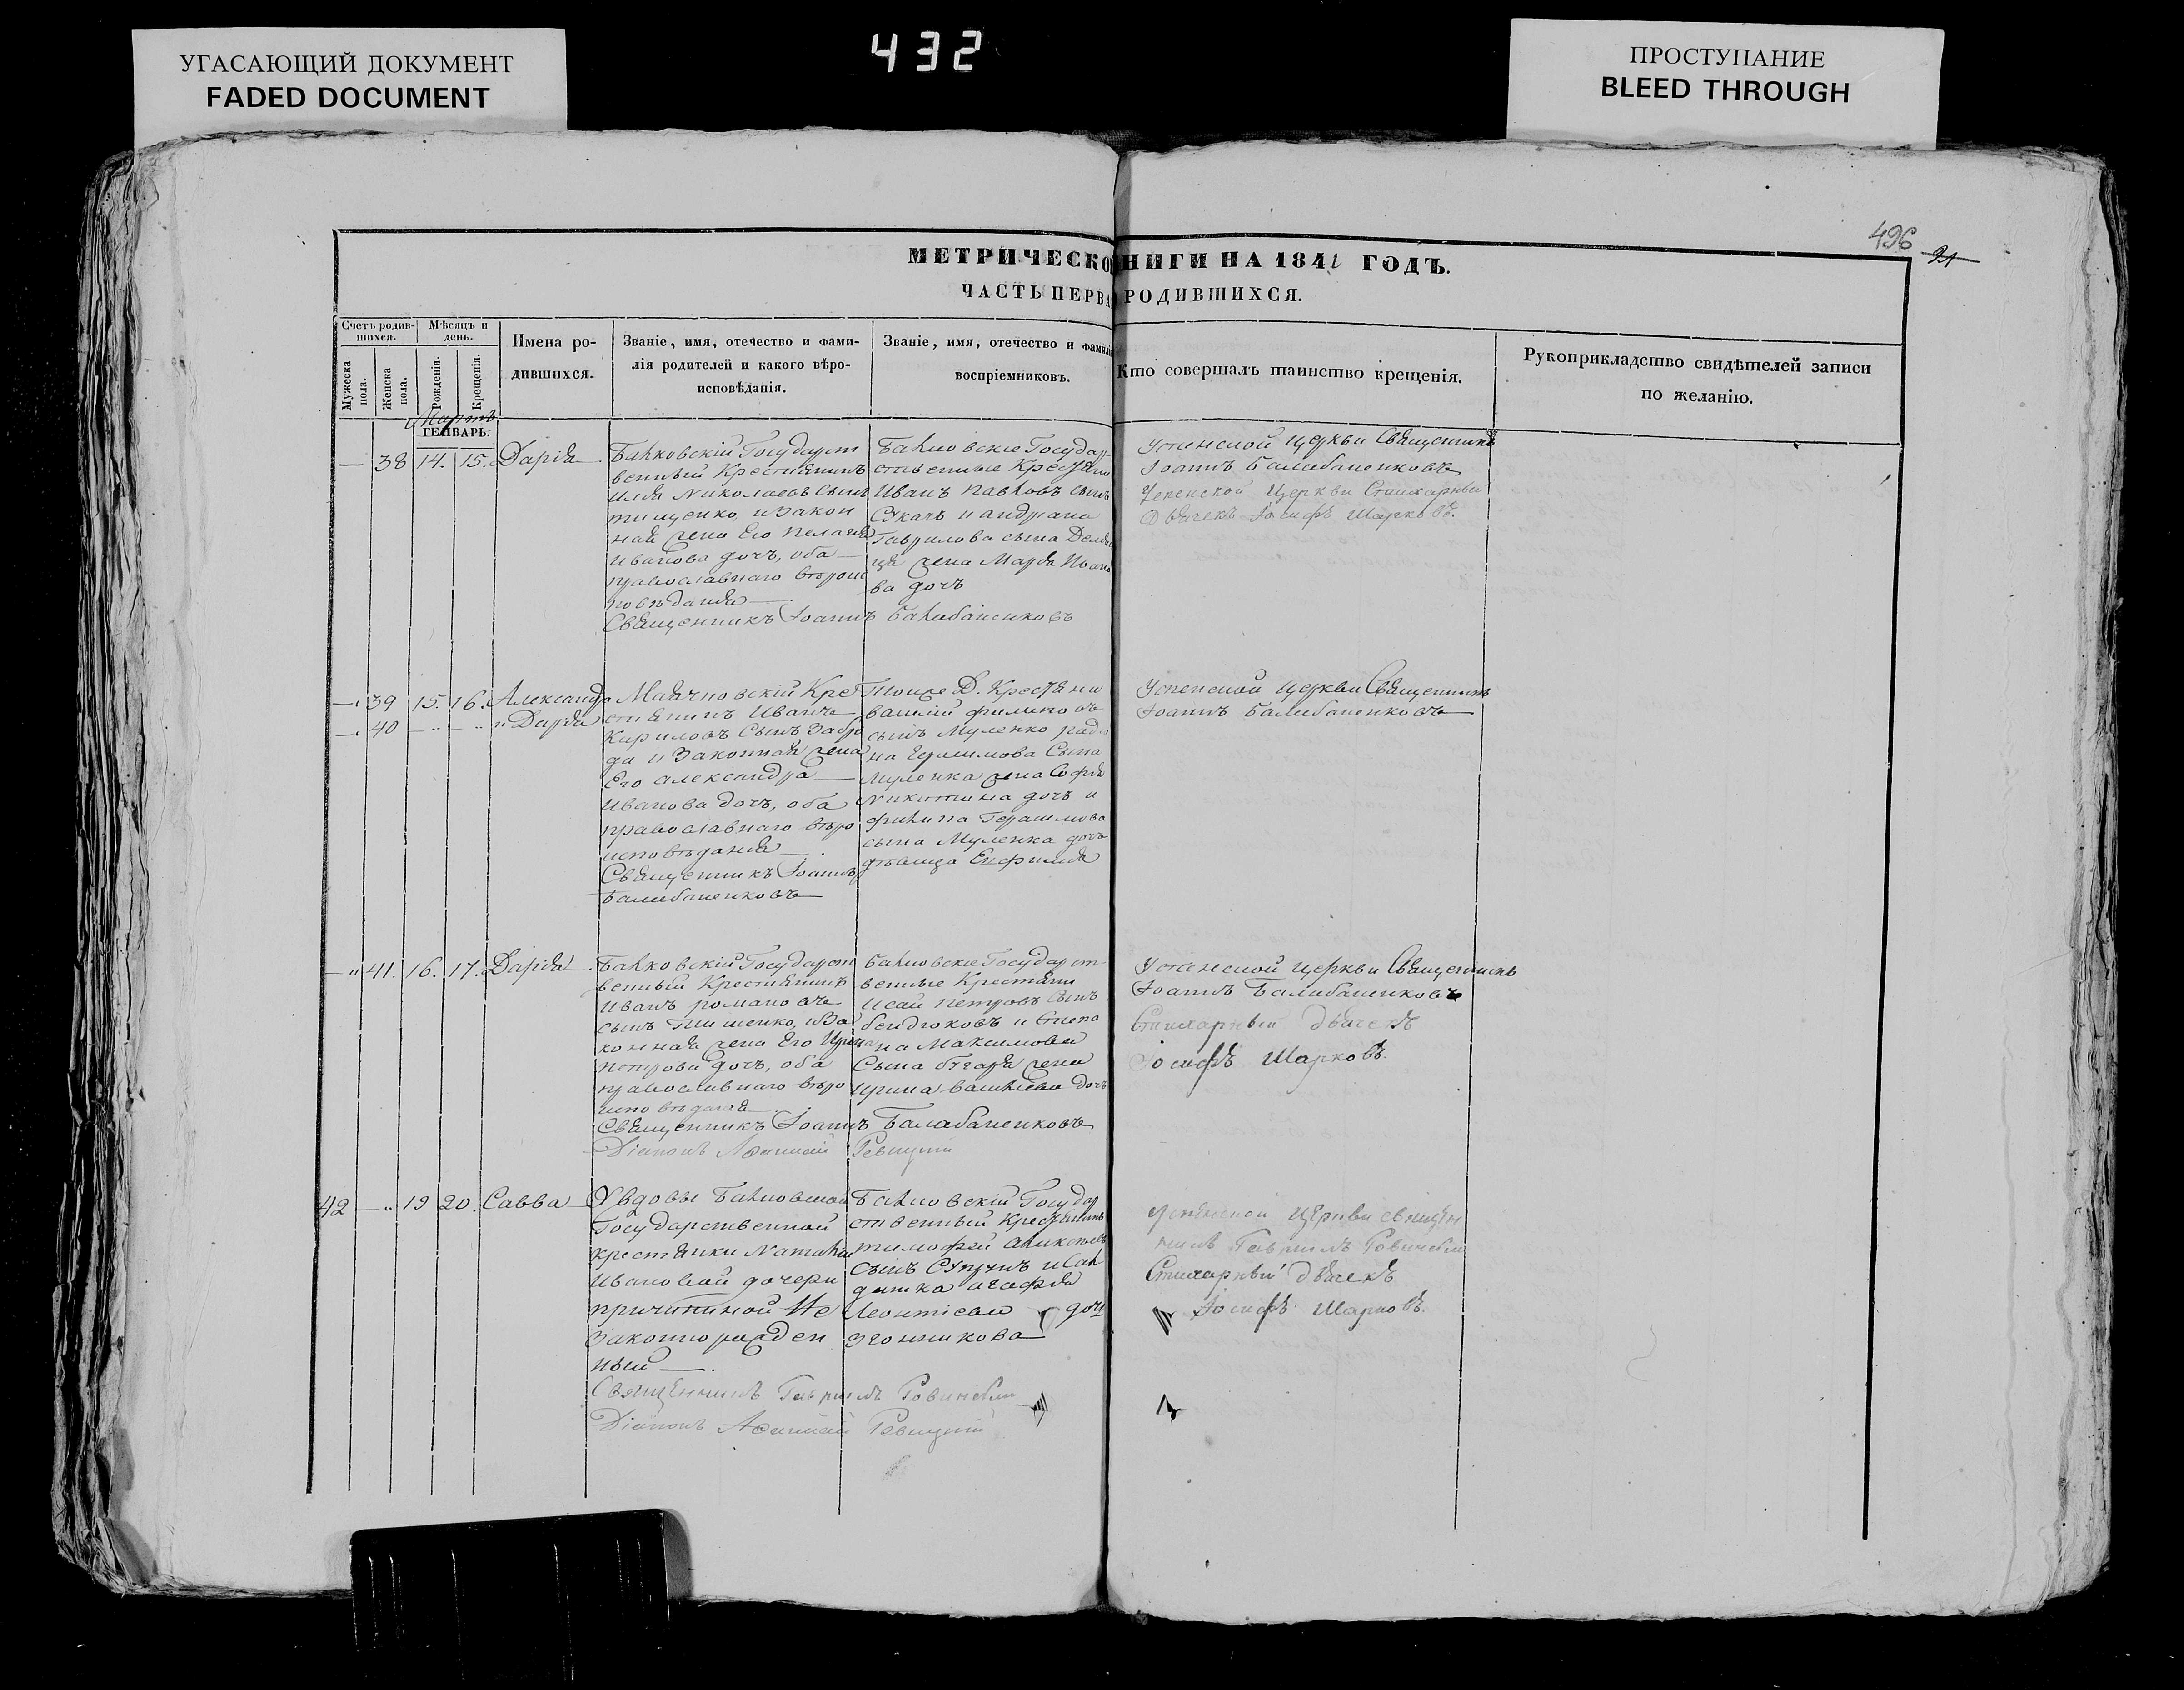 УГАСАЮЩИЙ ДОКУМЕНТ
FADED DOCUMENT
432
ПРОСТУПАНИЕ
BLEED THROUGH
496
21
МЕТРИЧЕСКО НИГИ НА 1841 ГОДЪ.
ЧАСТЬ ПЕРВА РОДИВШИХСЯ.
Счетъ родив-
шихся.
Мужеска
пола.
Женска
пола.
Мѣсяцъ и
день.
Рожденія.
Крещенія.
Имена ро-
дившихся.
Званіе, имя, отечество и фами-
лія родителей и какого вѣро-
исповѣданія.
Званіе, имя, отечество и фамилі
воспріемниковъ.
Кто совершалъ таинство крещенія.
Рукоприкладство свидѣтелей записи
по желанію.
Мартъ
ГЕНВАРЬ.
— 38 14. 15. Дарія
Государст
венный Крестянинъ
Илія Николаевъ Сынъ
тищенко, и Закон
ная жена Его Пелагія
Иванова дочъ, оба
православнаго вѣроис
повѣданія
Священникъ Іоаннъ Балабаненковъ
Государ-
ственные Крестяне
Иванъ Павловъ сынъ
Сукачъ и андріана
Гаврилова сына
жена Марія Ивано
ва дочъ
Успенской Церкви Священникъ
Іоаннъ Балабаненковъ
Успенской Церкви Стихарный
Дьячекъ Іосифъ Шарковъ.
— 39 15. 16. Александра
— 40 — — и Дарія
Маячковскій Кре
стянинъ Иванъ
Кириловъ Сынъ
и Законная жена
Его александра
Иванова дочъ, оба
православнаго вѣро
исповѣданія
Священникъ Іоаннъ
Балабаненковъ
Тоже Д. Крестяни
василій филиповъ
сынъ Муленко
Сына
Муленка жена Софія
Никитина дочъ и
филипа Герасимова
сына Муленка дочъ
дѣвица Евфимія
Успенской Церкви Священникъ
Іоаннъ Балабаненковъ
— 41. 16. 17. Дарія
Государст
венный Крестянинъ
Иванъ романовъ
сынъ Тищенко, и За
конная жена Его Ирина
Петрова дочъ, оба
православнаго вѣро
исповѣданія
Священникъ Іоаннъ Балабаненковъ
Діаконъ Ревицкій
Государст-
венные Крестяни
Исай Петровъ Сынъ
бендюковъ и Степа
на Максимова
Сына жена
Ирина васильева дочъ
Успенской Церкви Священникъ
Іоаннъ Балабаненковъ
Стихарный дьячекъ
Іосифъ Шарковъ.
42 — 19 20. Савва
У вдовы
Государственной
крестянки Наталіи
Ивановой дочери
причитиной Не
законнорожден
ный
Священникъ Гавріилъ Ровинскій
Діаконъ Ревицкій
Государ
ственный Крестянинъ
тимофей
сынъ Супрунъ и сал
датка агафія
Леонтіева дочъ
Успенской Церкви священ
никъ Гавріилъ Ровинскій
Стихарный дьячекъ
Іосифъ Шарковъ.